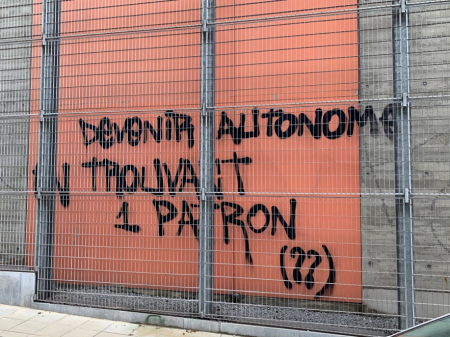 DEVENIR AUTONOME
EN TROUVANT
1 PATRON
(??)